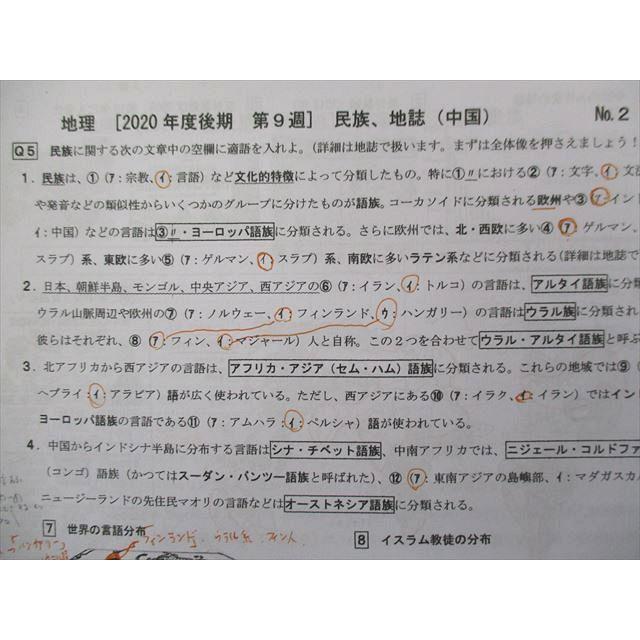 地理 [2020年度後期 第9週] 民族、地誌(中国) No.2
Q5 民族に関する次の文章中の空欄に適語を入れよ。(詳細は地誌で扱います。まずは全体像を押さえましょう!
1. 民族は、①(ア:宗教、イ:言語)など文化的特徴によって分類したもの。特に①〃における②(ア:文字、イ:文法
や発音などの類似性からいくつかのグループに分けたものが語族。コーカソイドに分類される欧州や③(ア:インド
イ:中国)などの言語は③〃・ヨーロッパ語族に分類される。さらに欧州では、北・西欧に多い④(ア:ゲルマン、
スラブ)系、東欧に多い⑤(ア:ゲルマン、イ:スラブ)系、南欧に多いラテン系などに分類される(詳細は地誌で
2. 日本、朝鮮半島、モンゴル、中央アジア、西アジアの⑥(ア:イラン、イ:トルコ)の言語は、アルタイ語族に分
ウラル山脈周辺や欧州の⑦(ア:ノルウェー、イ:フィンランド、ウ:ハンガリー)の言語はウラル語族に分類され
彼らはそれぞれ、⑧(ア:フィン、イ:マジャール)人と自称。この2つを合わせてウラル・アルタイ語族と呼ぶ
3. 北アフリカから西アジアの言語は、アフリカ・アジア(セム・ハム)語族に分類される。これらの地域では⑨(
ヘブライ、イ:アラビア)語が広く使われている。ただし、西アジアにある⑩(ア:イラク、イ:イラン)ではイン
ヨーロッパ語族の言語である⑪(ア:アムハラ、イ:ペルシャ)語が使われている。
4. 中国からインドシナ半島に分布する言語はシナ・チベット語族、中南アフリカでは、ニジェール・コルドファ
(コンゴ)語族(かつてはスーダン・バンツー語族と呼ばれた)、⑫(ア:東南アジアの島嶼部、イ:マダガスカ
ニュージーランドの先住民マオリの言語などはオーストネシア語族に分類される。
7 世界の言語分布
フィンランド ウラル系 フィン人
8 イスラム教徒の分布